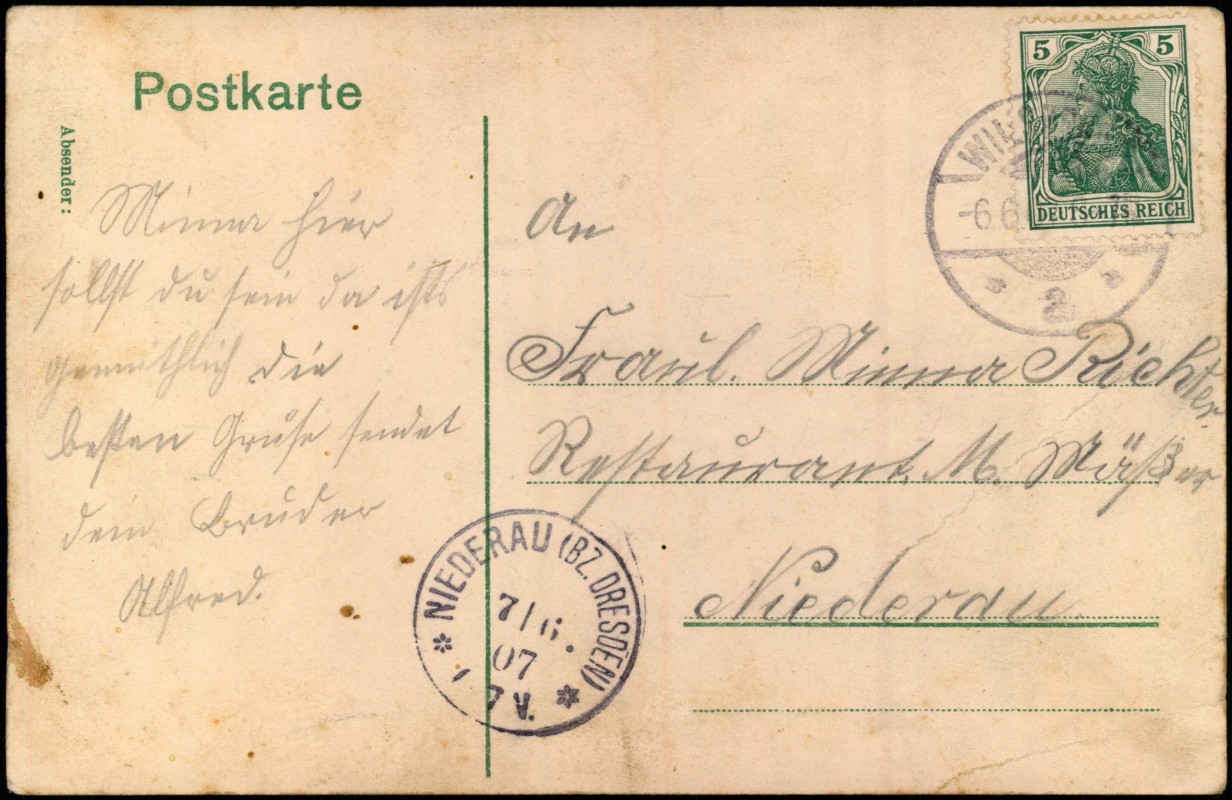 Postkarte
Absender:
Minna hier
sollst du sein da ists
gemüthlich die
besten Grüse sendet
dein Bruder
Alfred.
5 5
DEUTSCHES REICH
-6.6
2
An
Fräul. Minna Richter
Restaurant. M. Mäßer
Niederau.
NIEDERAU (BZ. DRESDEN)
7/6.
07